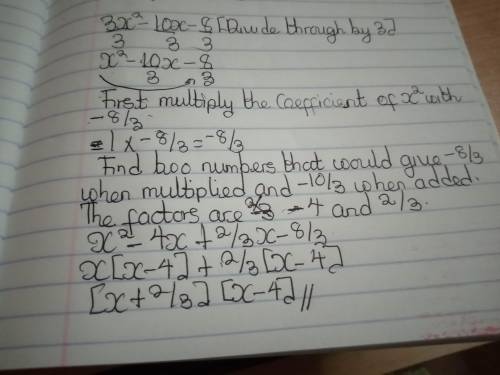 3x² - 10x - 8 [Divide through by 3]
3 3 3
x² - 10x - 8
3 3
First multiply the coefficient of x² with
-8/3.
= 1 x -8/3 = -8/3
Find two numbers that would give -8/3
when multiplied and -10/3 when added.
The factors are -4 and 2/3.
x² - 4x + 2/3x - 8/3
x[x-4] + 2/3[x-4]
[x + 2/3] [x-4]//